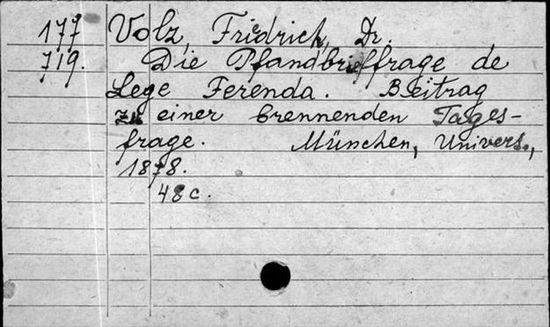 177 Volz Friedrich, Dr.
719. Die Pfandbrieffrage de
Lege Ferenda. Beitrag
zu einer brennenden Tages-
frage. München, Univers.,
1878.
48 c.